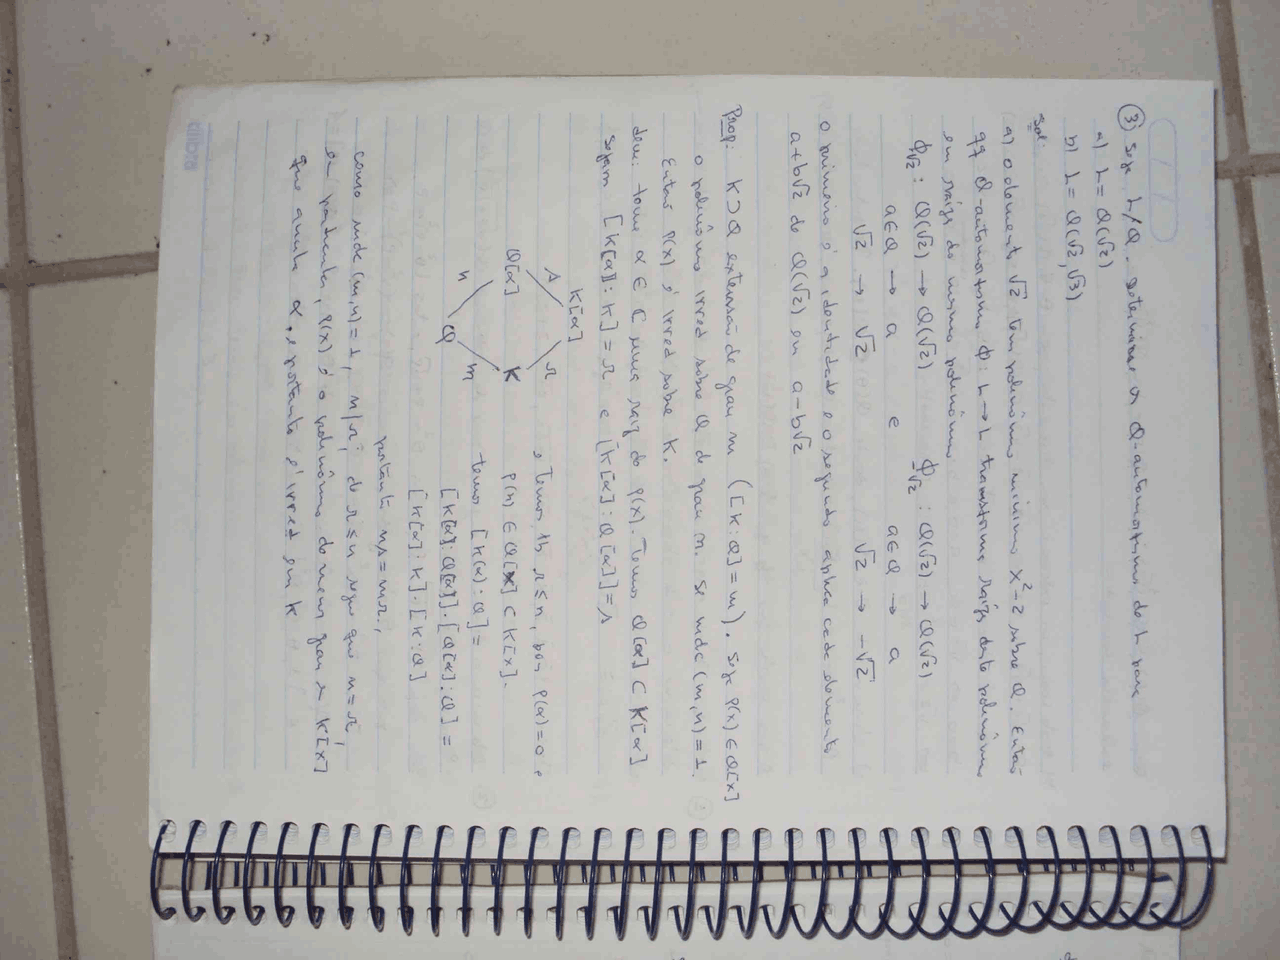 ③ Seja L/Q. Determine os Q-automorfismos de L para
a) L = Q(√2)
b) L = Q(√2, √3)
Sol:
a) O elemento √2 tem polinômio mínimo x²-2 sobre Q. Então
qq Q-automorfismo Φ: L → L transforma raízes deste polinômio
em raízes do mesmo polinômio
Φ√2 : Q(√2) → Q(√2) Φ-√2 : Q(√2) → Q(√2)
a∈Q → a e a∈Q → a
√2 → √2 √2 → -√2
O primeiro é a identidade e o segundo aplica cada elemento
a+b√2 de Q(√2) em a-b√2
Prop: K⊃Q extensão de grau m ([K:Q]=m). Seja p(x) ∈ Q[x]
o polinômio irred sobre Q de grau n. Se mdc(m,n)=1.
Então p(x) é irred sobre K.
dem: tome α ∈ C uma raiz de p(x). Temos Q[α] ⊂ K[α]
Sejam [K[α]:K] = r e [K[α]:Q[α]] = s
K[α]
s r • Temos r ≤ n, pois p(α)=0 e
Q[α] K p(x) ∈ Q[x] ⊂ K[x].
n m temos [K(α):Q] =
Q [K[α]:Q[α]].[Q[α]:Q] =
[K[α]:K].[K:Q]
portanto ns = mr.,
como mdc(m,n)=1, n|r; de r≤n segue que n=r;
em particular, p(x) é o polinômio de menor grau em K[x]
que anula α, e portanto é irred em K
tilibra